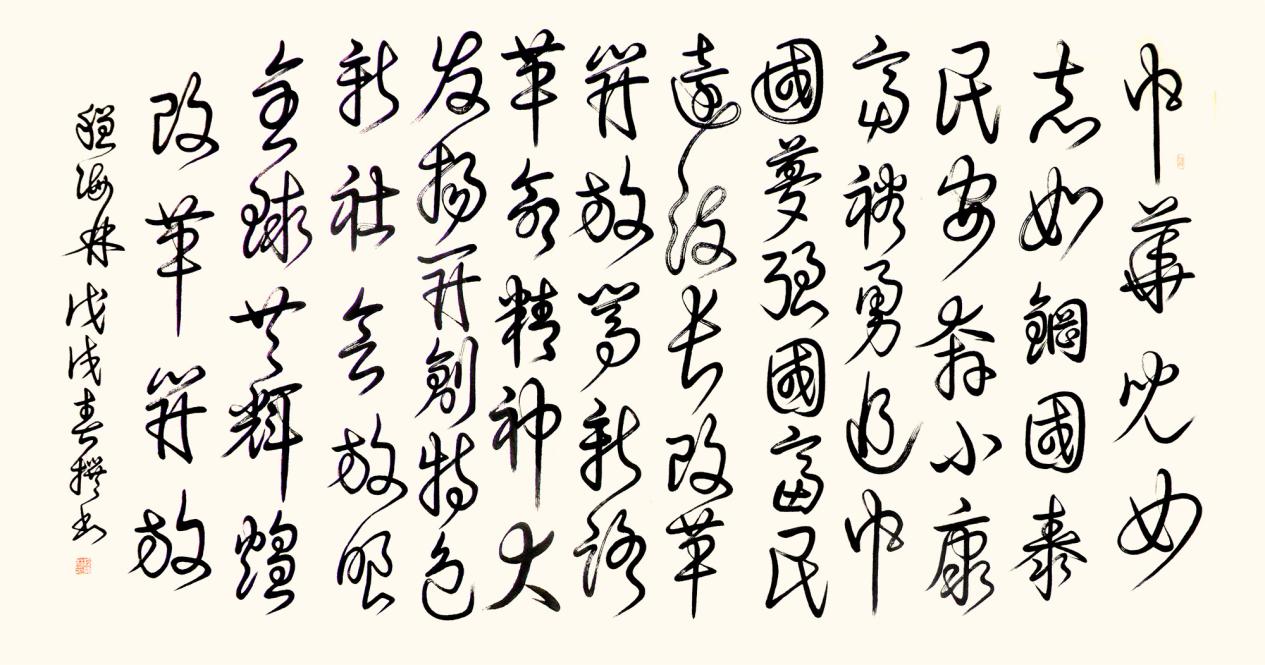 中華兒女
志如鋼國泰
民安奔小康
富裕勇追中
國夢强國富民
遠长改革
開放新路
革命精神大
发揚開創特色
新社會放眼
全球共輝煌
改革開放
海林戊戌春撰书